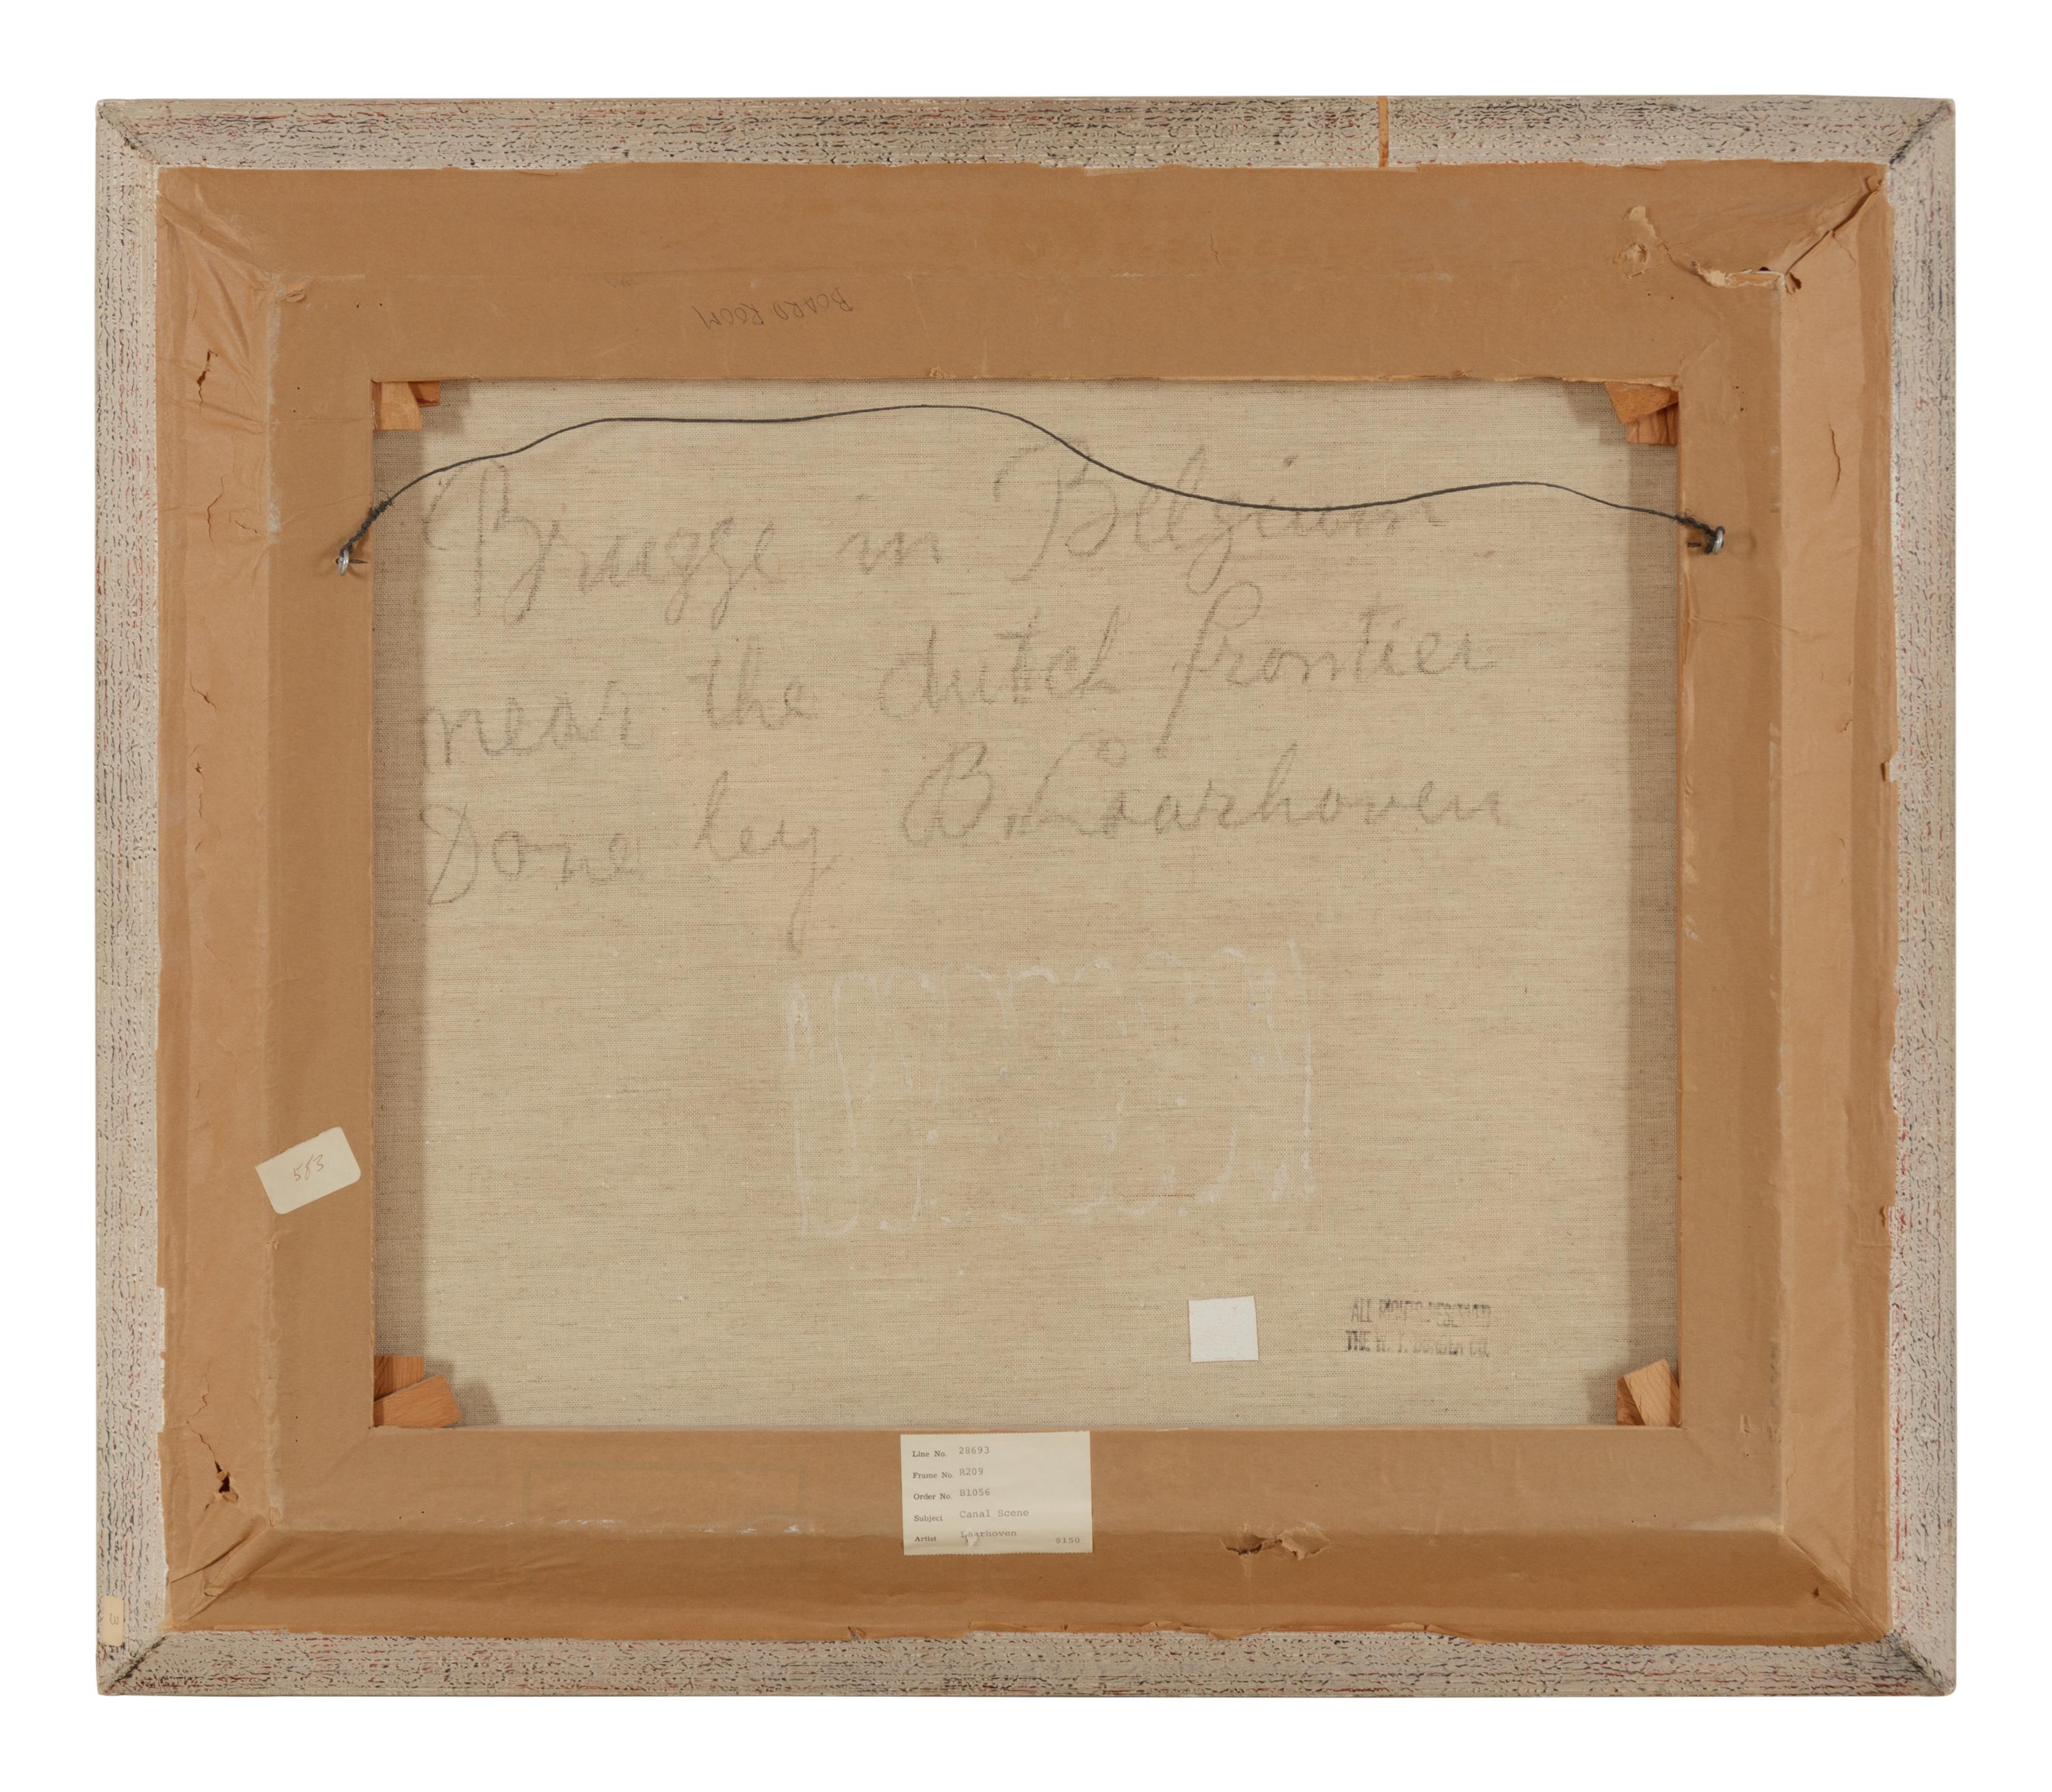 BOARD ROOM
Brugge in Belgium
near the dutch frontier
Done by B. Laarhoven
583
ALL RIGHTS RESERVED
THE
CO.
Line No. 28693
Frame No. R209
Order No. B1056
Subject Canal Scene
Artist Laarhoven $150
3